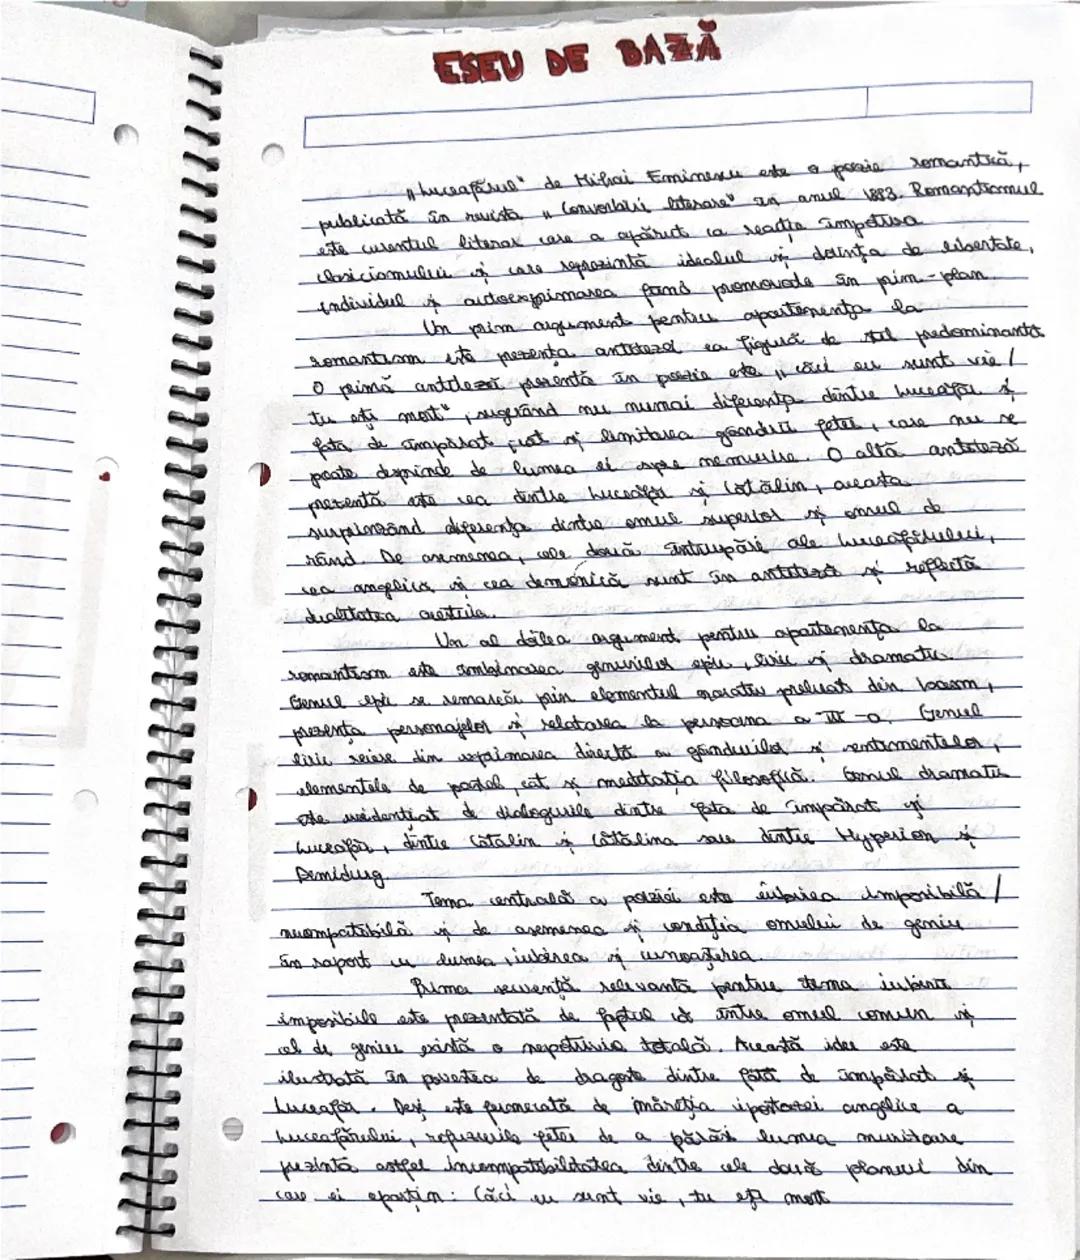 ESEU DE BAZĂ
„Luceafărul" de Mihai Eminescu este o poezie romantică,
publicată în revista „Convorbiri literare" în anul 1883. Romantismul
este curentul literar care a apărut ca reacție împotriva
clasicismului și care reprezintă idealul și dorința de libertate,
individul și autoexprimarea fiind promovate în prim-plan.
Un prim argument pentru apartenența la
romantism este prezența antitezei ca figură de stil predominantă.
O primă antiteză prezentă în poezie este „căci eu sunt vie /
tu ești mort", sugerând nu numai diferența dintre Luceafăr și
fata de împărat, cât și limitarea gândirii fetei, care nu se
poate desprinde de lumea ei spre nemurire. O altă antiteză
prezentă este cea dintre Luceafăr și Cătălin, aceasta
surprinzând diferența dintre omul superior și omul de
rând. De asemenea, cele două întrupări ale Luceafărului,
cea angelică și cea demonică sunt în antiteză și reflectă
dualitatea acestuia.
Un al doilea argument pentru apartenența la
romantism este îmbinarea genurilor epic, liric și dramatic.
Genul epic se remarcă prin elementul narativ preluat din basm,
prezența personajelor și relatarea la persoana a III-a. Genul
liric reiese din exprimarea directă a gândurilor și sentimentelor,
elementele de pastel, cât și meditația filosofică. Genul dramatic
este evidențiat de dialogurile dintre fata de împărat și
Luceafăr, dintre Cătălin și Cătălina sau dintre Hyperion și
Demiurg.
Tema centrală a poeziei este iubirea imposibilă /
incompatibilă și de asemenea și condiția omului de geniu
în raport cu lumea, iubirea și cunoașterea.
Prima secvență relevantă pentru tema iubirii
imposibile este prezentată de faptul că între omul comun și
cel de geniu există o nepotrivire totală. Această idee este
ilustrată în povestea de dragoste dintre fata de împărat și
Luceafăr. Deși este fermecată de măreția ipostazei angelice a
Luceafărului, refuzurile fetei de a părăsi lumea muritoare
prezintă astfel incompatibilitatea dintre cele două planuri din
care ei aparțin: Căci eu sunt vie, tu ești mort